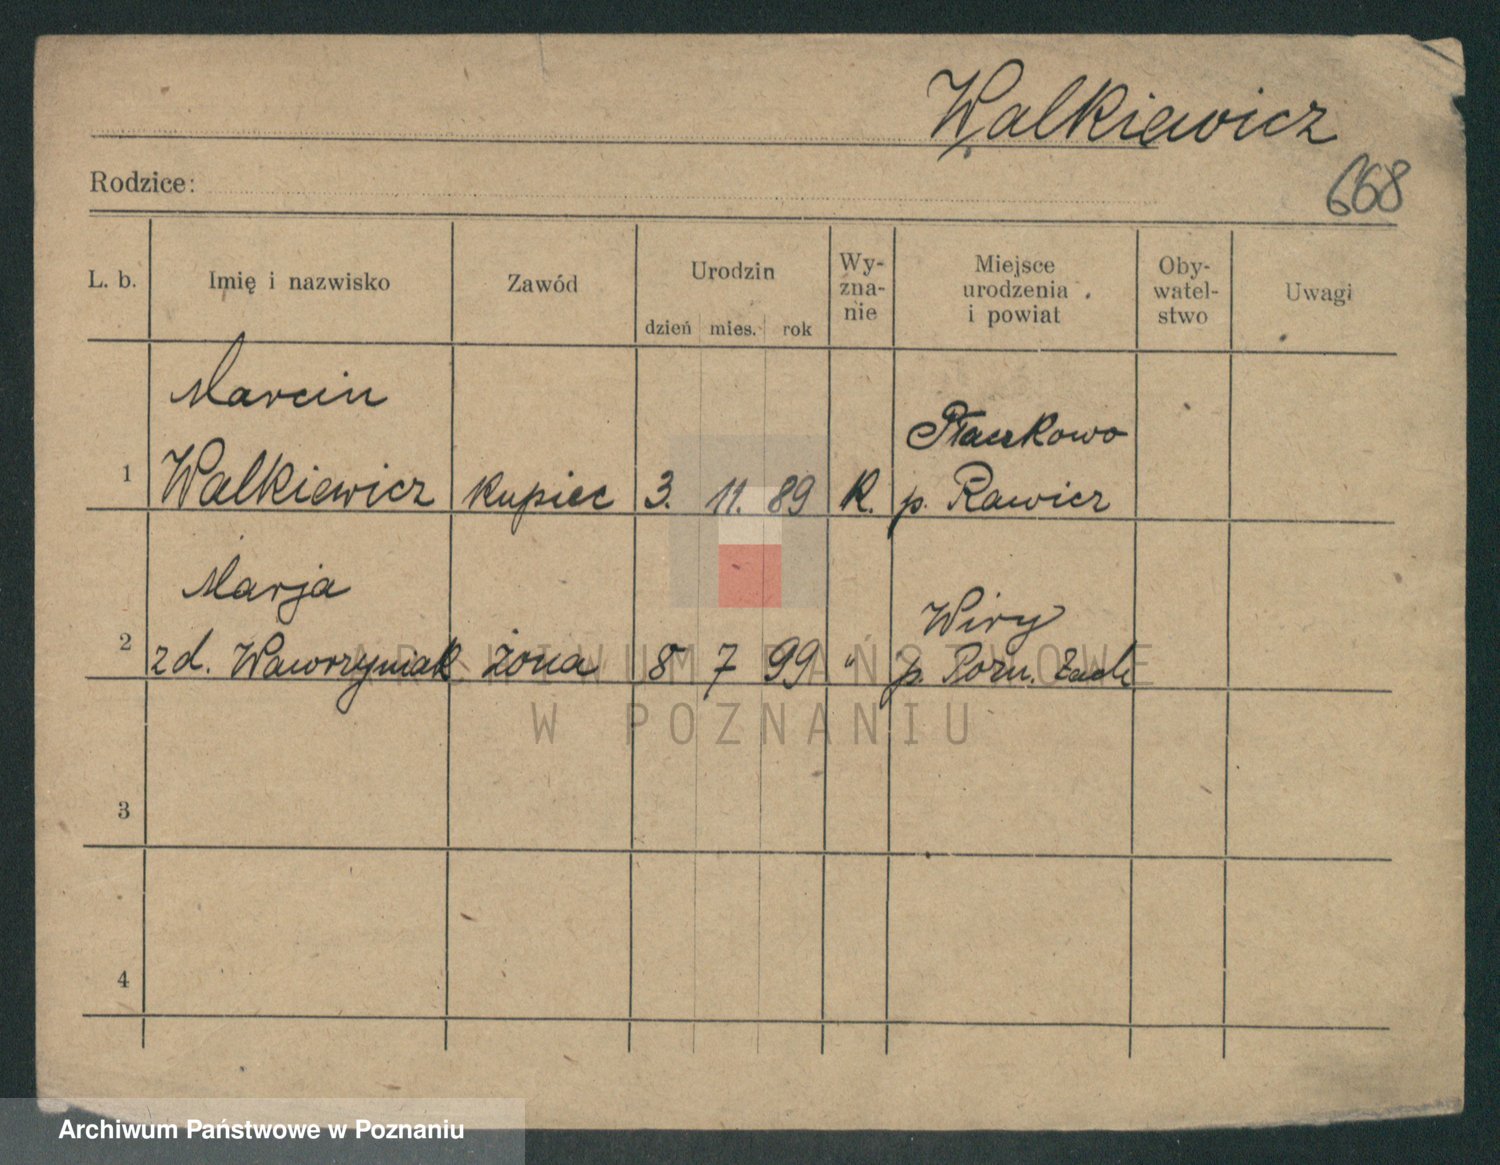 Walkiewicz
Rodzice:
668
L. b. Imię i nazwisko Zawód Urodzin dzień mies. rok Wy-zna-nie Miejsce urodzenia i powiat Oby-watel-stwo Uwagi
Marcin
Ptaczkowo
1 Walkiewicz kupiec 3. 11. 89 K. p. Rawicz
Marja
Wiry
2 z d. Wawrzyniak żona 8 7 99 " p. Pozn. Zach
3
4
ARCHIWUM PAŃSTWOWE
W POZNANIU
Archiwum Państwowe w Poznaniu